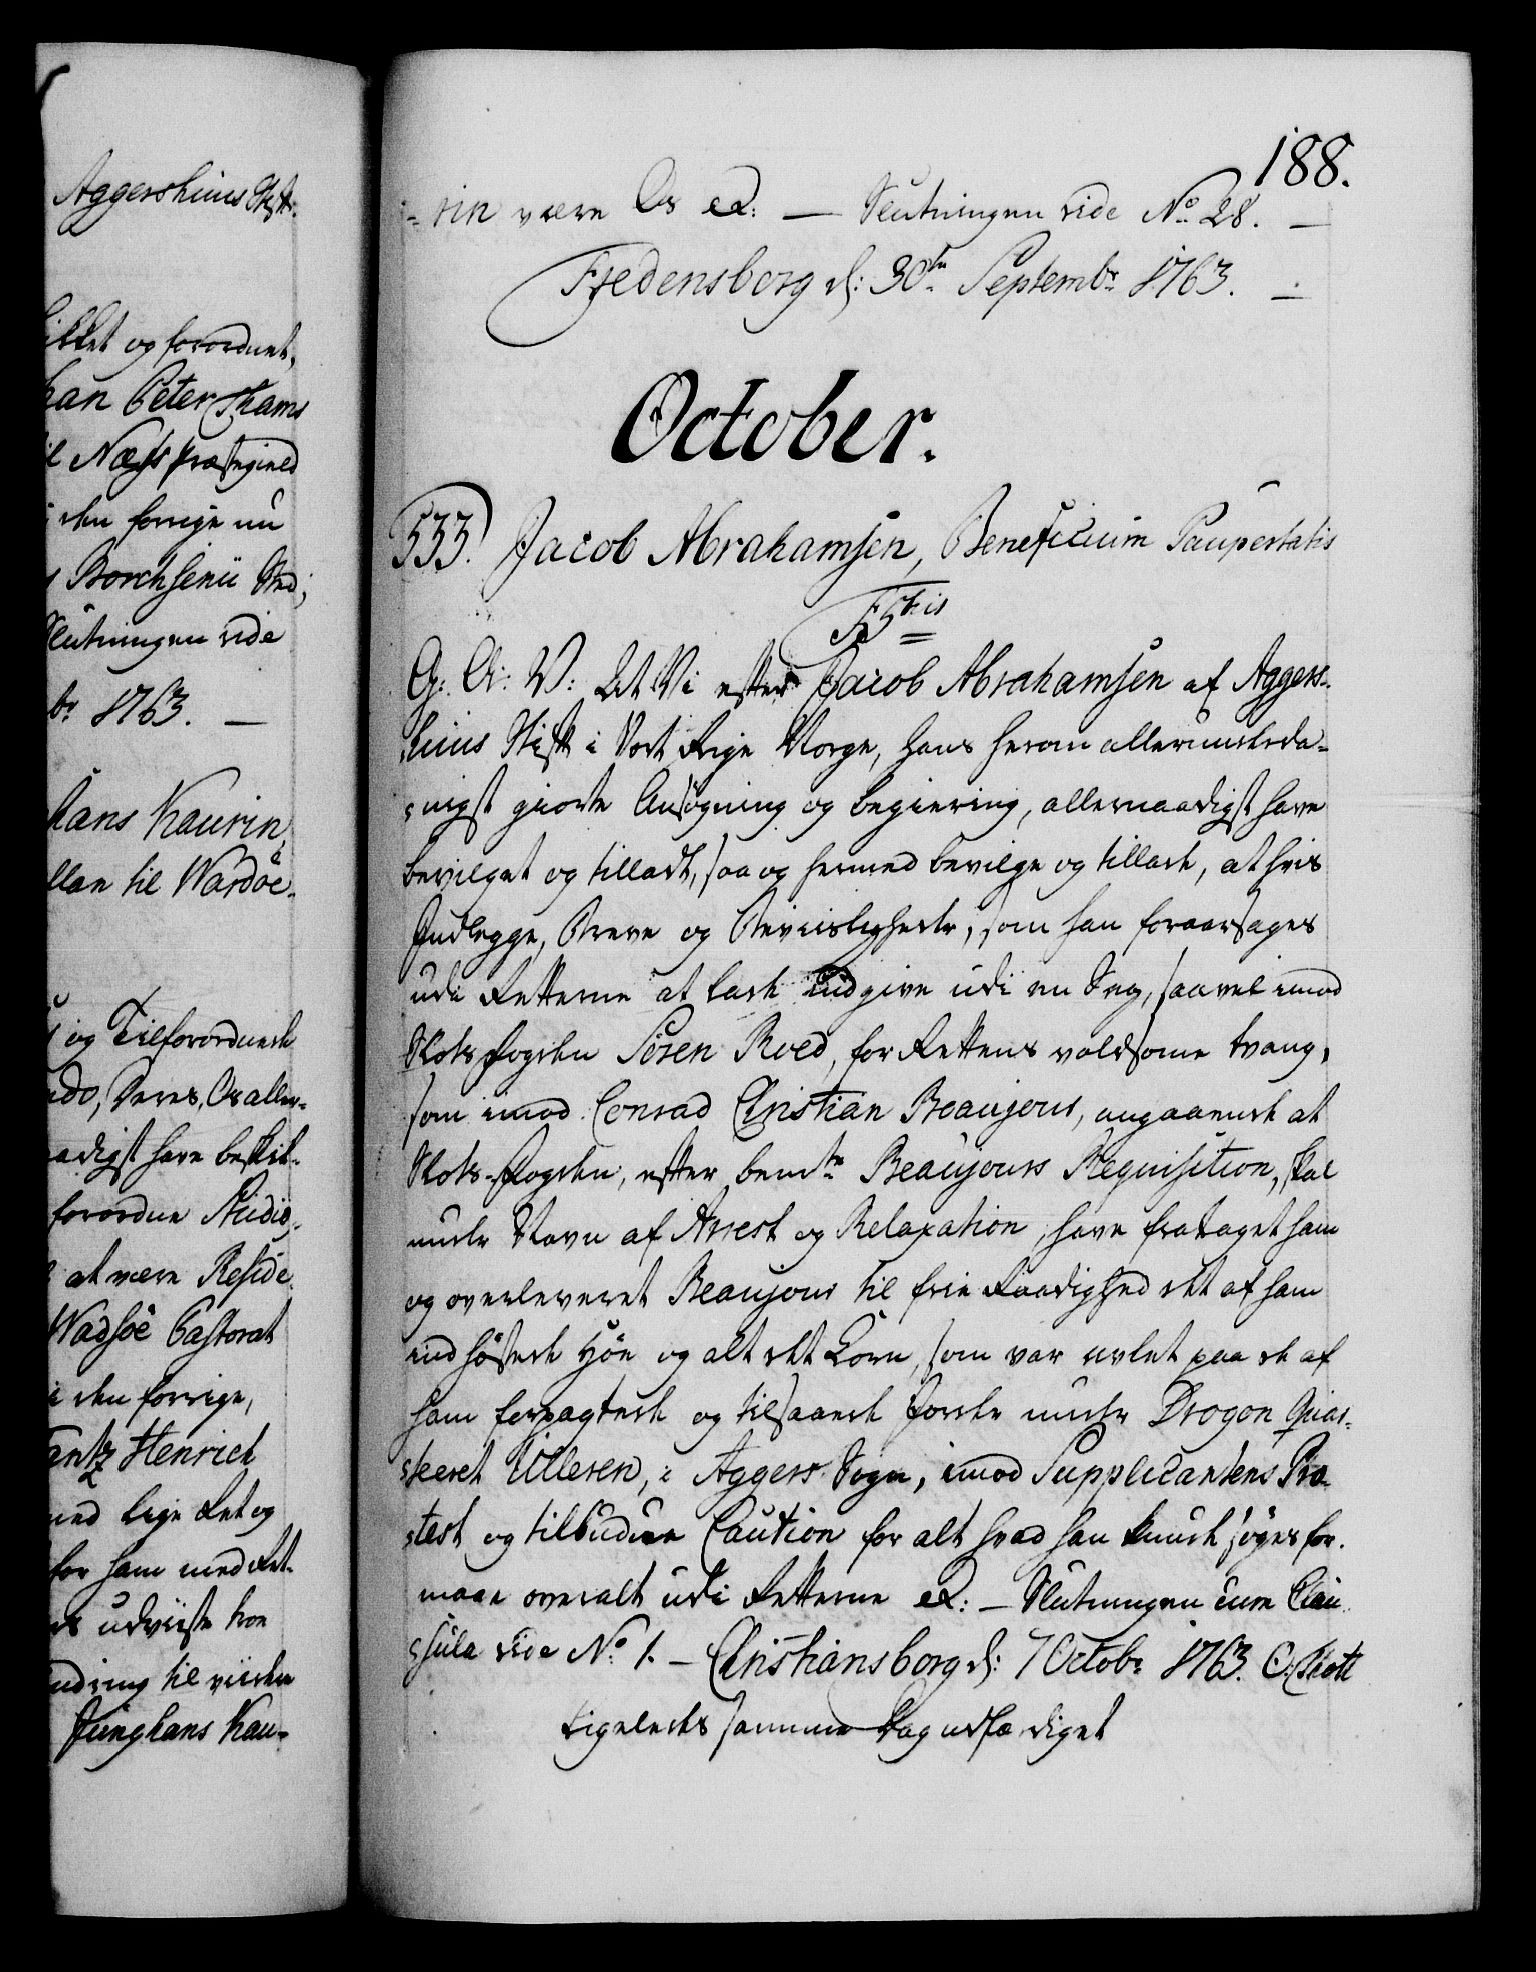 Aggershuus Stift.
skikket og forordnet,
han Peter Thams
til Næss Præstegield
i den forrige nu
Borchsenii Sted;
Slutningen vide
br 1763. —
hans Kaurin,
llan til Wardöe.
og Tilforordnede
do, Deres, Os aller-
naadigst have beskik-
forordne Studio-
at være Reside
Wadsöe Pastorat
i den forrige,
Frantz Henrich
med lige Ret og
for ham med Ret-
udviiste troe
til viiden
Junghans Kau-
188.
rin være Os &c: — Slutningen vide No 28. —
Fredensborg d: 30te Septembr 1763. —
October.
533. Jacob Abrahamsen, Beneficium Paupertatis
F 5tis
G: A: V: At Vi efter Jacob Abrahamsen af Aggers-
huus Stift i Vort Rige Norge, hans herom allerunderda-
nigst giorte Ansøgning og begiering, allernaadigst have
bevilget og tilladt, saa og hermed bevilge og tillade, at hvis
Indlegge, Breve og Beviisligheder, som han foraarsages
udi Retterne at lade indgive udi en Sag, saavel imod
Slotsfogden Sören Roed, for Rettens voldsome tvang,
som imod Conrad Christian Beaujour, angaaende at
Slots-Fogden, efter bemte Beaujours Requisition, skal
under Navn af Arrest og Relaxation, have frataget ham
og overleveret Beaujour til frie Raadighed det af ham
indhöstede Höe og alt det Korn, som var avlet paa de af
ham forpagtede og tilsaaede Jorder under Dragon Quar-
teeret Ulleren, i Aggers Sogn, imod Supplicantens Pro-
test og tilbudne Caution for alt hvad han kunde søges for.
maae overalt udi Retterne &c: — Slutningen cum Clau-
sula vide No 1. — Christiansborg d: 7 Octobr 1763. O: Thott
Ligeledes samme Dag udfærdiget